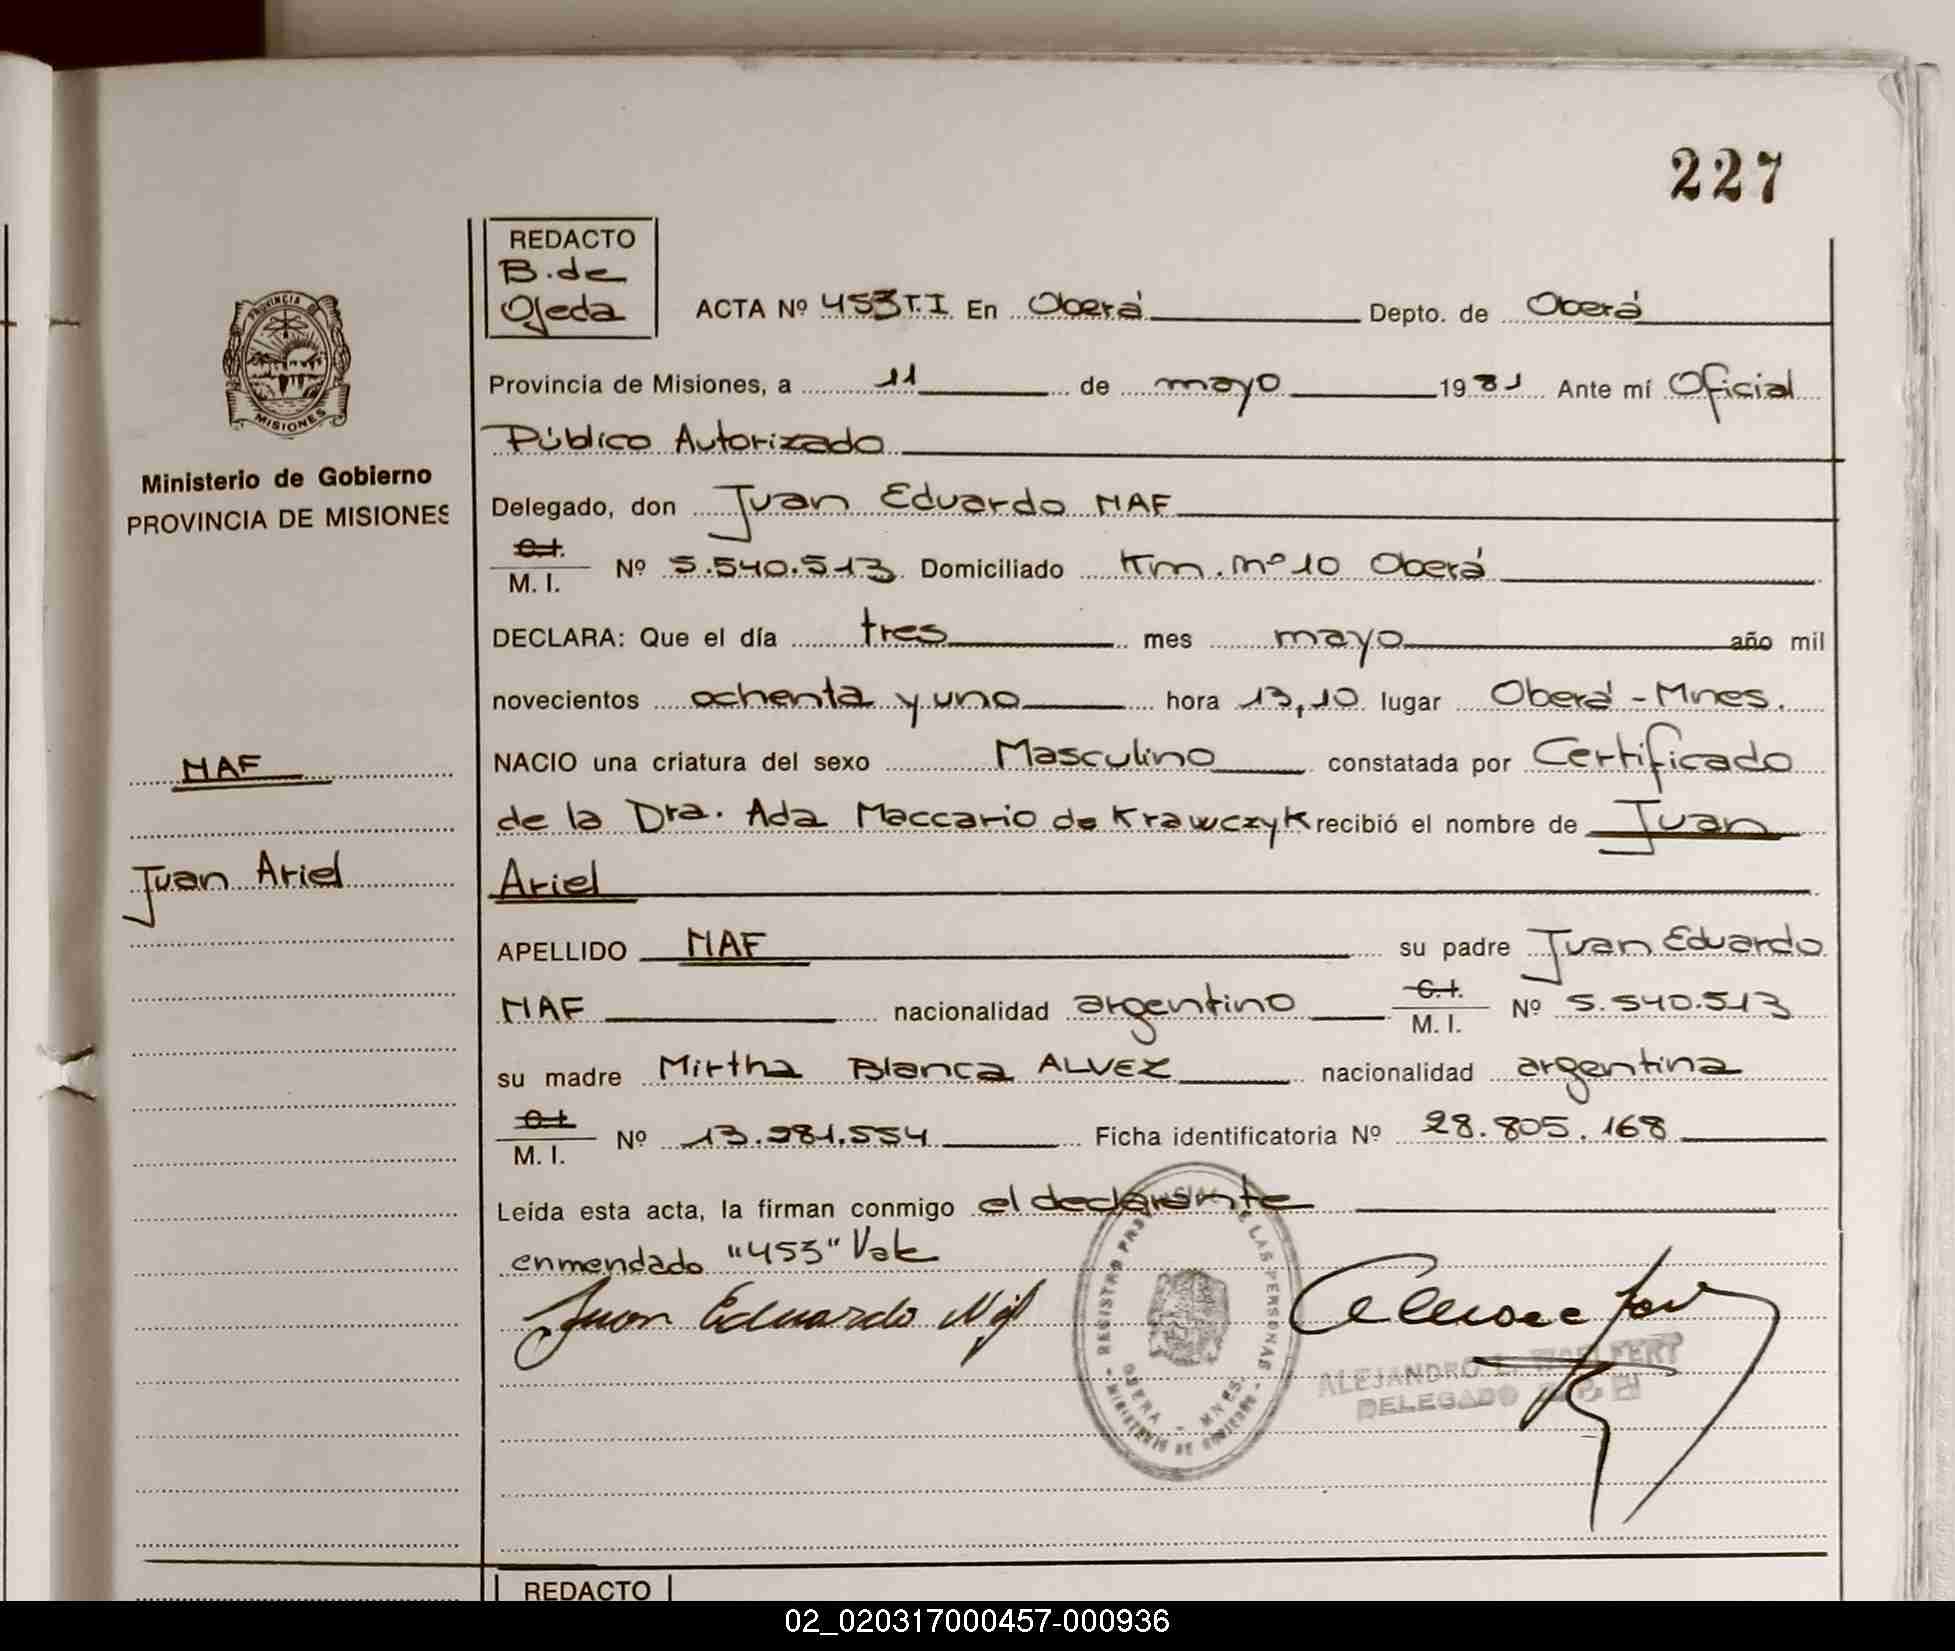 227
REDACTO
B. de
Ojeda
ACTA Nº 453 T.I En Oberá Depto. de Oberá
Provincia de Misiones, a 11 de mayo 1981 Ante mí Oficial
Público Autorizado
PROVINCIA DE
MISIONES
Ministerio de Gobierno
PROVINCIA DE MISIONES
Delegado, don Juan Eduardo NAF
C.I.
M. I. Nº 5.540.513 Domiciliado Km. nº 10 Oberá
DECLARA: Que el día tres mes mayo año mil
novecientos ochenta y uno hora 13,10 lugar Oberá - Mnes.
NAF
NACIO una criatura del sexo Masculino constatada por Certificado
de la Dra. Ada Maccario de Krawczyk recibió el nombre de Juan
Juan Ariel
Ariel
APELLIDO NAF su padre Juan Eduardo
NAF nacionalidad argentino C.I. M. I. Nº 5.540.513
su madre Mirtha Blanca ALVEZ nacionalidad argentina
C.I.
M. I. Nº 13.981.554 Ficha identificatoria Nº 28.805.168
Leída esta acta, la firman conmigo el declarante
enmendado "453" Vale
Juan Eduardo Naf
REGISTRO DE LAS PERSONAS
OBERA - MNES.
MINISTERIO DE GOBIERNO
ALEJANDRO L.
DELEGADO
REDACTO
02_020317000457-000936